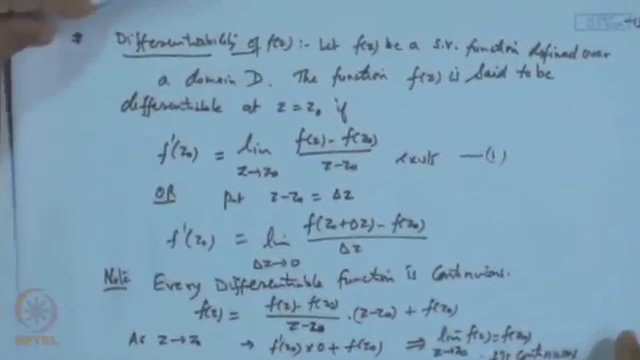 * Differentiability of f(z) :- Let f(z) be a S.V. function defined over
a domain D. The function f(z) is said to be
differentiable at z = z₀ if
f'(z₀) = lim_{z→z₀} (f(z) - f(z₀))/(z - z₀) exists —(1)
OR put z - z₀ = Δz
f'(z₀) = lim_{Δz→0} (f(z₀+Δz) - f(z₀))/Δz
Note: Every Differentiable function is Continuous.
f(z) = (f(z) - f(z₀))/(z - z₀) . (z - z₀) + f(z₀)
As z → z₀ → f'(z₀) × 0 + f(z₀) ⇒ lim_{z→z₀} f(z) = f(z₀)
Continuous
NPTEL